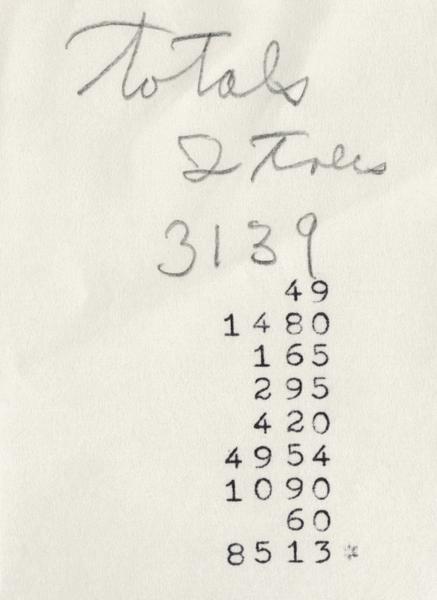 Totals
2 Trees
3139
49
1480
165
295
420
4954
1090
60
8513*